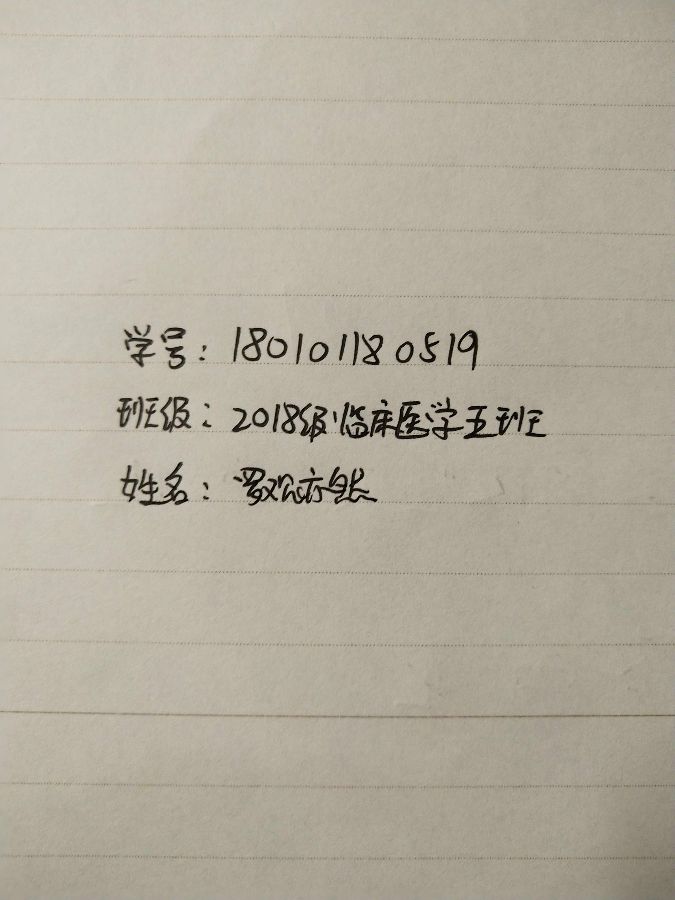 学号：180101180519
班级：2018级临床医学五班
姓名：